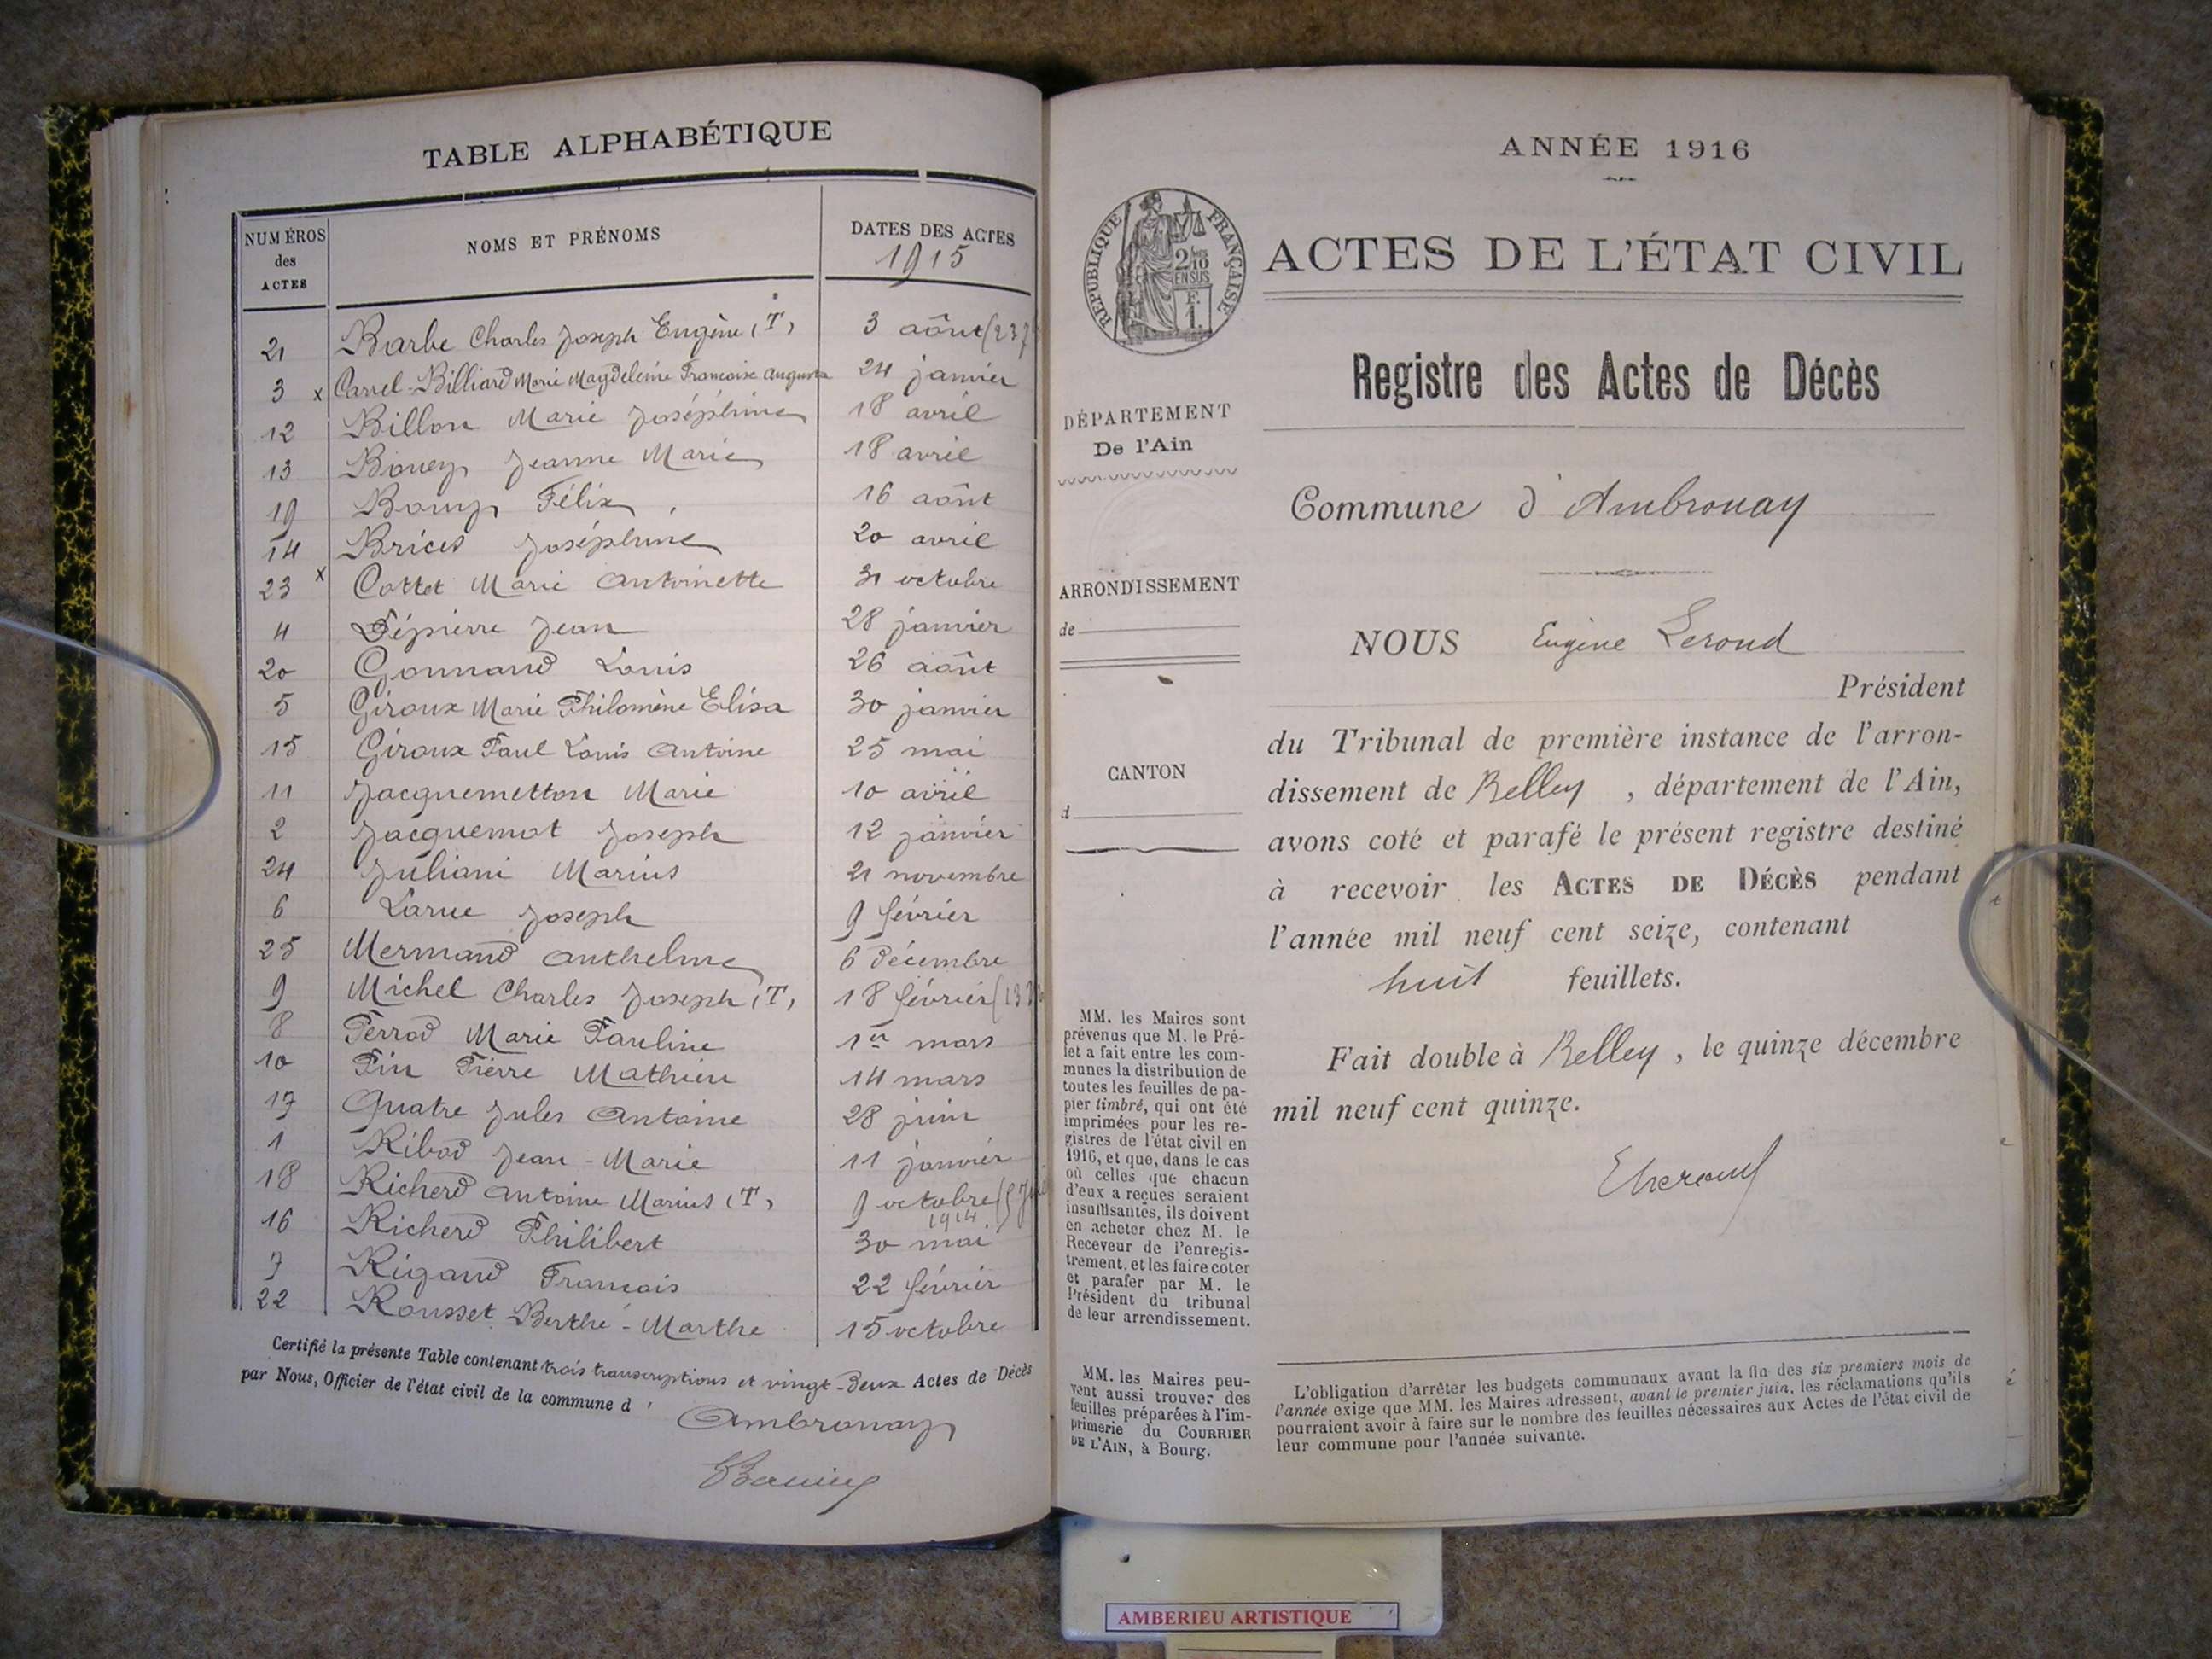 TABLE ALPHABÉTIQUE
NUMÉROS
des
ACTES
NOMS ET PRÉNOMS
DATES DES ACTES
1915
21 Barbe Charles Joseph Eugène (T) 3 août
3 x Carrel-Billiard Marie Magdeleine Francoise Augusta 24 janvier
12 Billon Marie Joséphine 18 avril
13 Bouey Jeanne Marie 18 avril
19 Félix 16 août
14 Brices Joséphine 20 avril
23 x Cottet Marie Antoinette 31 octobre
4 Dépierre Jean 28 janvier
20 Gonnand Louis 26 août
5 Giroux Marie Philomène Elisa 30 janvier
15 Giroux Paul Louis Antoine 25 mai
11 Jacquemetton Marie 10 avril
2 Jacquemot Joseph 12 janvier
24 Juliani Marius 21 novembre
6 Larue Joseph 9 février
25 Mermand Anthelme 6 décembre
9 Michel Charles Joseph (T) 18 février
8 Perrod Marie Pauline 1er mars
10 Pin Pierre Mathieu 14 mars
17 Quatre Jules Antoine 28 juin
1 Ribod Jean-Marie 11 janvier
18 Richerd Antoine Marius (T) 9 octobre
1914
16 Richerd Philibert 30 mai
7 Rigaud Francois 22 février
22 Rousset Berthe-Marthe 15 octobre
Certifié la présente Table contenant trois transcriptions et vingt-deux Actes de Décès
par Nous, Officier de l'état civil de la commune d'
Ambronay
ANNÉE 1916
RÉPUBLIQUE FRANÇAISE
2/10
EN SUS
F.
1.
ACTES DE L'ÉTAT CIVIL
Registre des Actes de Décès
DÉPARTEMENT
De l'Ain
Commune d'Ambronay
ARRONDISSEMENT
de
NOUS Eugène Lerond
Président
du Tribunal de première instance de l'arron-
dissement de Belley, département de l'Ain,
CANTON
d
avons coté et parafé le présent registre destiné
à recevoir les ACTES DE DÉCÈS pendant
l'année mil neuf cent seize, contenant
huit feuillets.
Fait double à Belley, le quinze décembre
mil neuf cent quinze.
MM. les Maires sont
prévenus que M. le Pré-
fet a fait entre les com-
munes la distribution de
toutes les feuilles de pa-
pier timbré, qui ont été
imprimées pour les re-
gistres de l'état civil en
1916, et que, dans le cas
où celles que chacun
d'eux a reçues seraient
insuffisantes, ils doivent
en acheter chez M. le
Receveur de l'enregis-
trement, et les faire coter
et parafer par M. le
Président du tribunal
de leur arrondissement.
MM. les Maires peu-
vent aussi trouver des
feuilles préparées à l'im-
primerie du COURRIER
DE L'AIN, à Bourg.
L'obligation d'arrêter les budgets communaux avant la fin des six premiers mois de
l'année exige que MM. les Maires adressent, avant le premier juin, les réclamations qu'ils
pourraient avoir à faire sur le nombre des feuilles nécessaires aux Actes de l'état civil de
leur commune pour l'année suivante.
AMBERIEU ARTISTIQUE